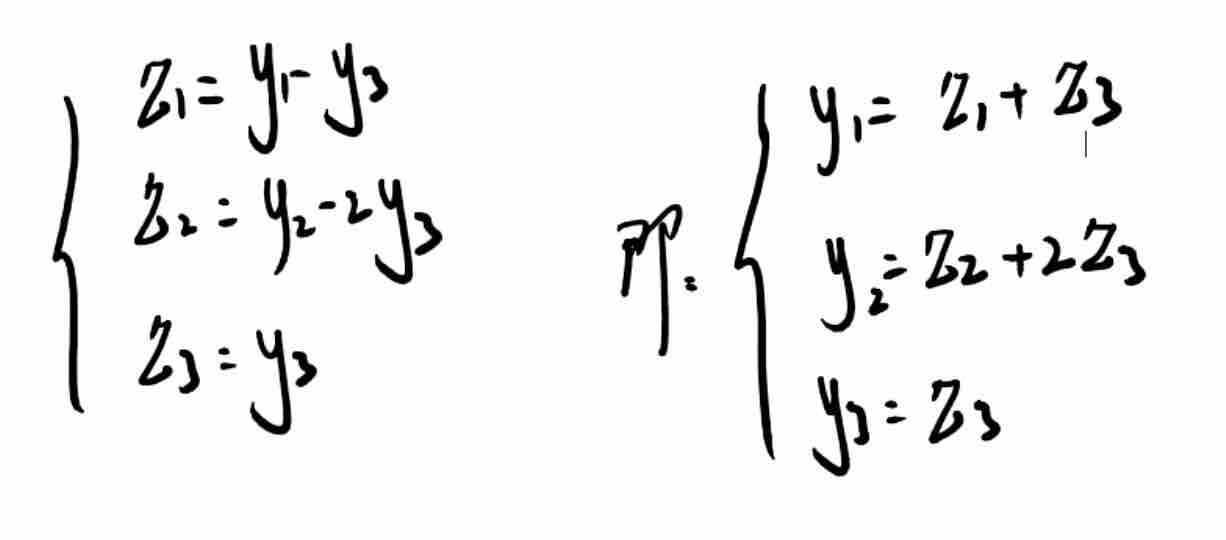 z₁ = y₁ - y₃
z₂ = y₂ - 2y₃
z₃ = y₃
即:
y₁ = z₁ + z₃
y₂ = z₂ + 2z₃
y₃ = z₃